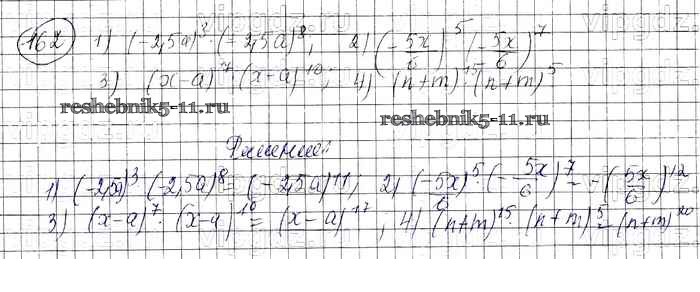 162 1) (-2,5a)³·(-2,5a)⁸; 2) (-5x/6)⁵·(-5x/6)⁷
3) (x-a)⁷·(x-a)¹⁰; 4) (n+m)¹⁵·(n+m)⁵
reshebnik5-11.ru reshebnik5-11.ru
Решение:
1) (-2,5a)³·(-2,5a)⁸=(-2,5a)¹¹; 2) (-5x/6)⁵·(-5x/6)⁷=-(5x/6)¹²
3) (x-a)⁷·(x-a)¹⁰=(x-a)¹⁷, 4) (n+m)¹⁵·(n+m)⁵=(n+m)²⁰